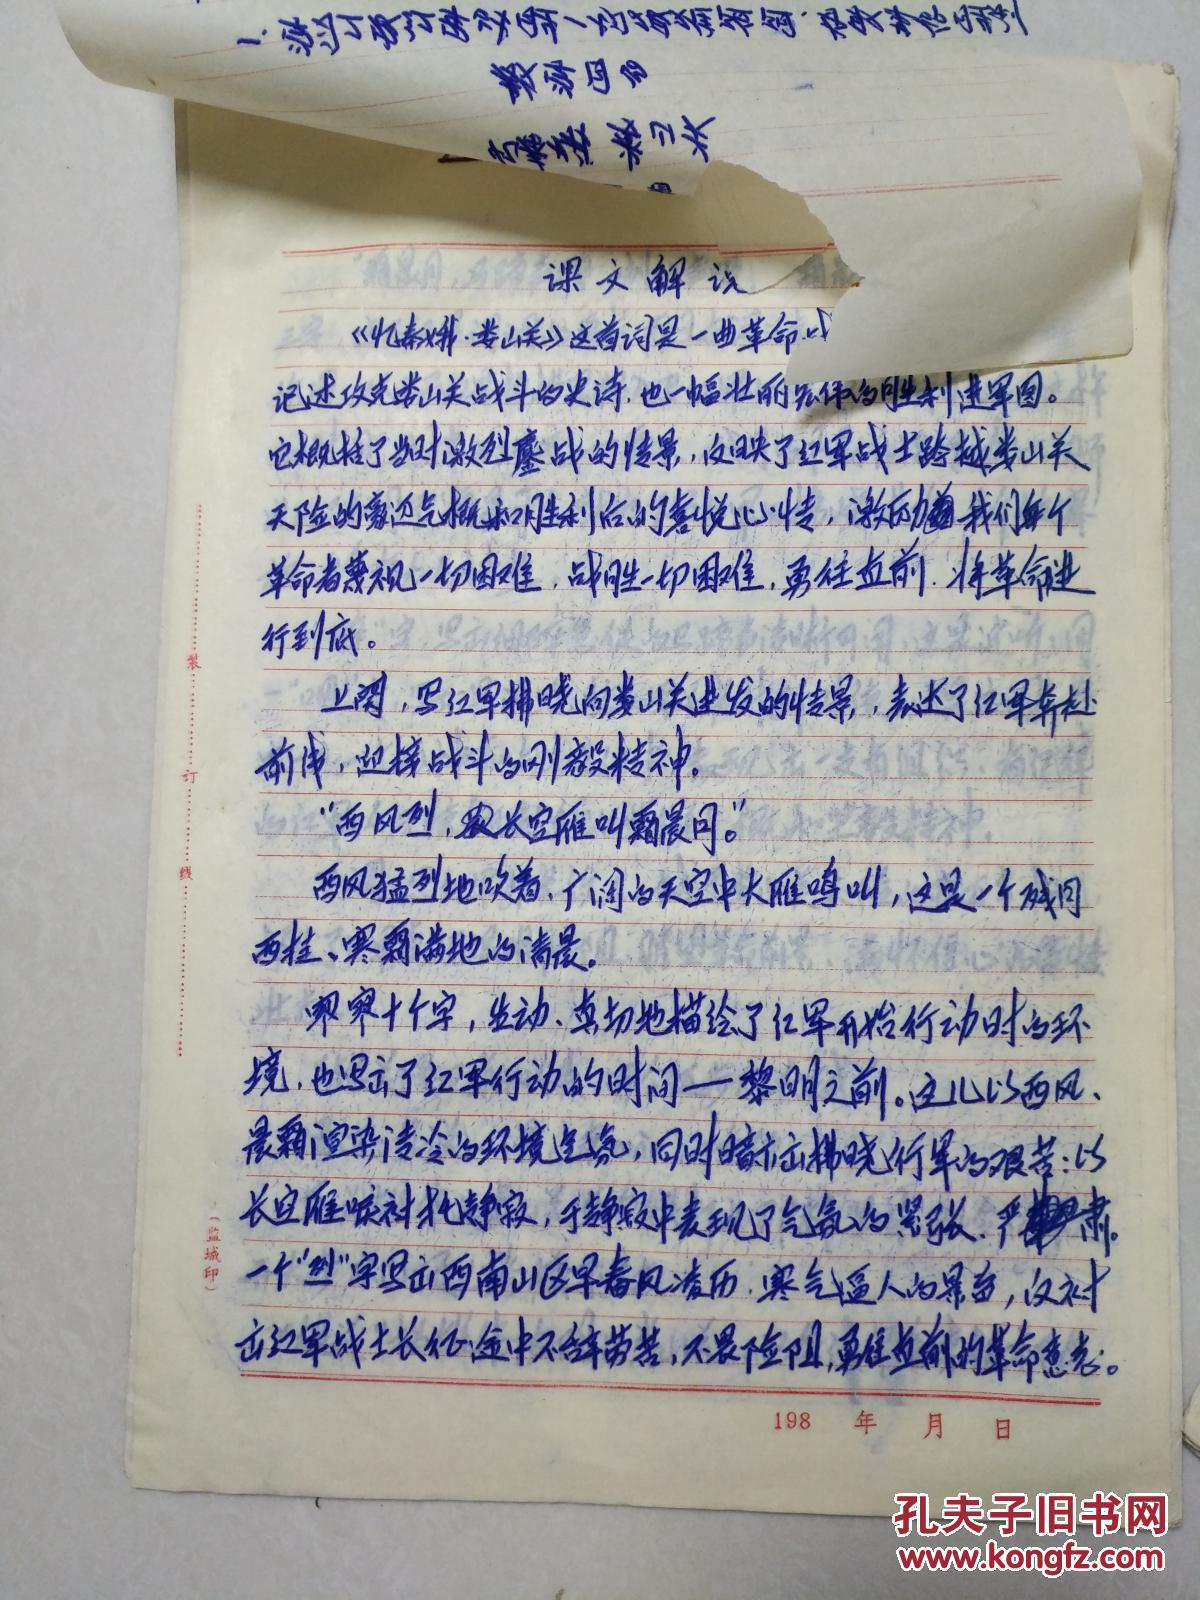 课文解说
《忆秦娥·娄山关》这首词是一曲革命
记述攻克娄山关战斗的史诗，也一幅壮丽宏伟的胜利进军图。
它概括了当时激烈鏖战的情景，反映了红军战士跨越娄山关
天险的豪迈气概和胜利后的喜悦心情，激励着我们每个
革命者藐视一切困难，战胜一切困难，勇往直前，将革命进
行到底。
上阕，写红军拂晓向娄山关进发的情景，表达了红军奔赴
前线，迎接战斗的刚毅精神。
“西风烈，长空雁叫霜晨月。”
西风猛烈地吹着，广阔的天空中大雁鸣叫，这是一个残月
西挂、寒霜满地的清晨。
寥寥十个字，生动、真切地描绘了红军开始行动时的环
境，也写出了红军行动的时间——黎明之前。这儿以西风、
晨霜渲染凄冷的环境气氛，同时暗示出拂晓行军的艰苦；以
长空雁唳衬托静寂，于静寂中表现了气氛的紧张、严肃。
一个“烈”字写出西南山区早春风凌厉、寒气逼人的景色，反衬
出红军战士长征途中不辞劳苦，不畏险阻，勇往直前的革命意志。
装
订
线
（盐城印）
198 年 月 日
孔夫子旧书网
www.kongfz.com